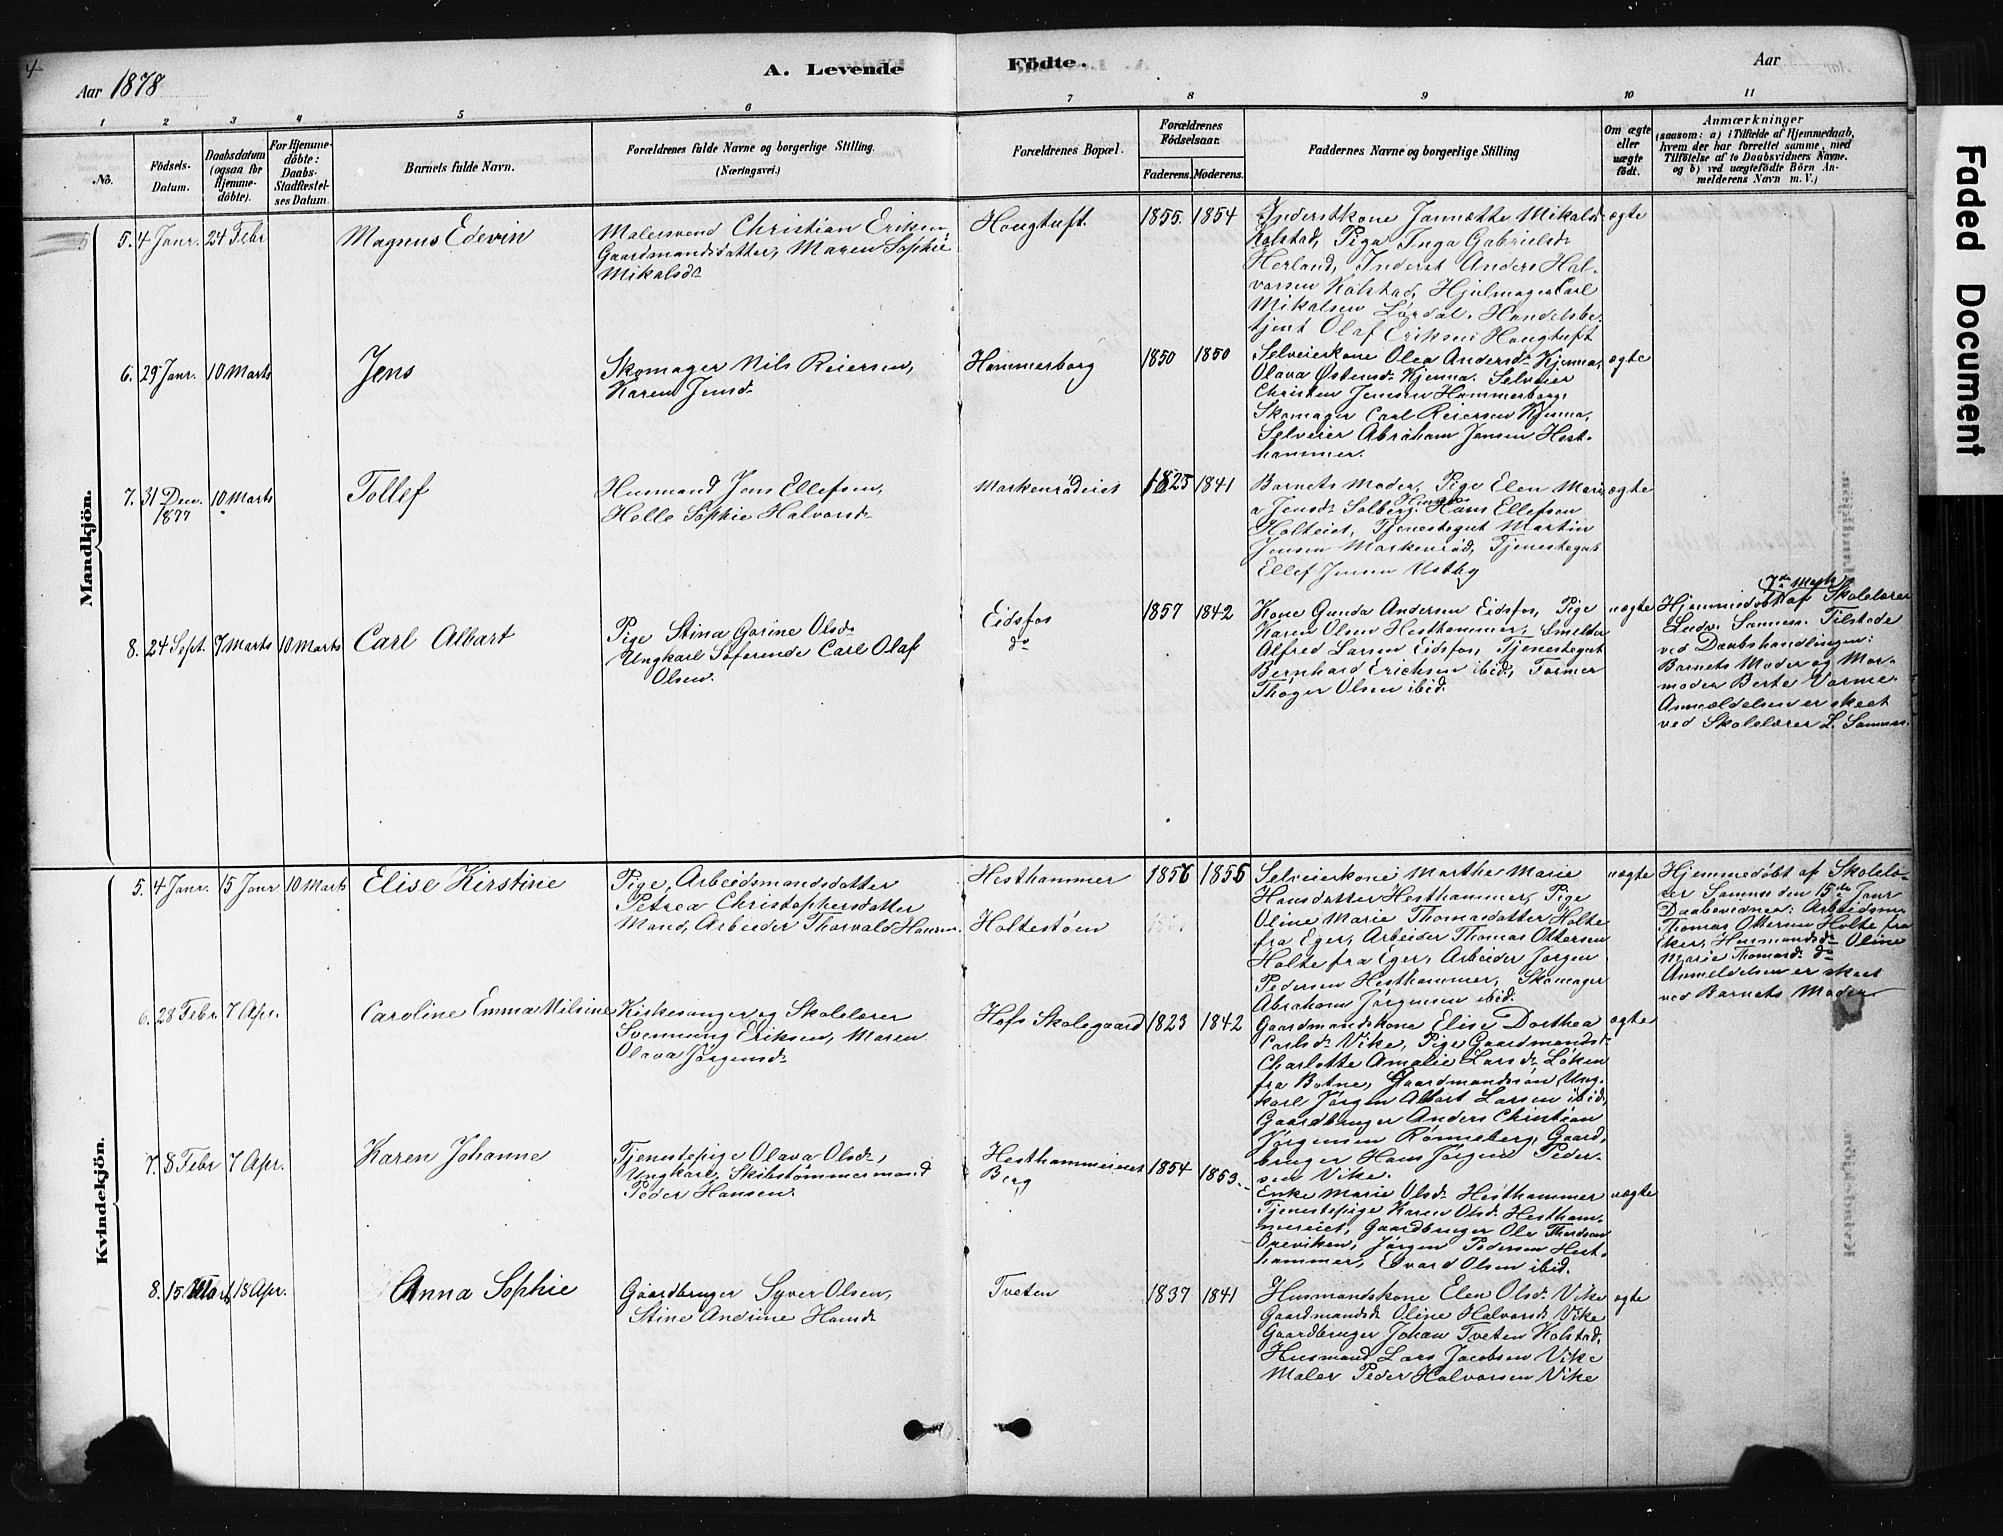 4
Aar 1878
A. Levende
Födte.
Aar
1 2 3 4 5 6 7 8 9 10 11
No.
Födsels-
Datum.
Daabsdatum
(ogsaa for
Hjemme-
döbte).
For Hjemme-
döbte:
Daabs-
Stadfæstel-
ses Datum.
Barnets fulde Navn.
Forældrenes fulde Navne og borgerlige Stilling.
(Næringsvei.)
Forældrenes Bopæl.
Forældrenes
Födselsaar.
Faderens. Moderens.
Faddernes Navne og borgerlige Stilling
Om ægte
eller
uægte
født.
Anmærkninger
(saasom: a) i Tilfælde af Hjemmedaab,
hvem der har forrettet samme, med
Tilföielse af to Daabsvidners Navne.
og b) ved uægtefödte Börn An-
melderens Navn m. V.)
Mandkjön.
5. 4 Janr. 24 Febr
Magnus Edevin
Malersvend Christian Eriksen,
Gaardmandsdatter, Maren Sophie
Mikalsdr
Hougtuft.
1855. 1854
Inderstkone Jannette Mikalsd
Kolstad, Pige Inga Gabrielsdr
Herland, Inderst Anders Hal-
vorsen Kolstad, Hjulmager Carl
Mikalsen Lørdal. Handelsbe-
tjent Olaf Eriksen Hougtuft
ægte
6. 29 Janr. 10 Marts
Jens
Skomager Nils Reiersen,
Karen Jensdr
Hammerborg
1850 1850
Selveierkone Olea Andersdr Kjenna,
Olava Østensdr Kjenna. Selveier
Christen Jensen Hammerborg,
Skomager Carl Reiersen Kjenna,
Selveier Abraham Jensen Hest-
hammer.
ægte
7. 31 Dec. 1877 10 Marts
Tollef
Husmand Jens Ellefsen,
Helle Sophie Halvorsdr
Markenrødeiet
1825 1841
Barnets Moder, Pige Elen Mari
a Jensdr Solberg. Hans Ellefsen
Holteiet, Tjenestegut Martin
Jensen Markenrød, Tjenestegut
Ellef Jensen Ustby
ægte
8. 24 Sept. 7 Marts 10 Marts
Carl Albart
Pige Stina Gorine Olsdr
Ungkarl Søfarende Carl Olaf
Olsen.
Eidsfos
do
1857 1842
Kone Gunda Andersen Eidsfos, Pige
Karen Olsen Hesthammer, Smelter
Alfred Larsen Eidsfos, Tjenestegut
Bernhard Erichsen ibid, Former
Thøger Olsen ibid.
uægte
7de Marts
Hjemmedøbt af Skolelærer
Ludv. Sannes. Tilstede
ved Daabshandlingen:
Barnets Moder og Mor-
moder Berte Varme.
Anmeldelsen er skeet
ved Skolelærer L. Sannes.
Kvindekjön.
5. 4 Janr. 15 Janr 10 Marts
Elise Kirstine
Pige, Arbeidsmandsdatter
Petrea Christophersdatter
Mand, Arbeider Thorvald Hansen.
Hesthammer
Holtestøen
1856 1855
Selveierkone Marthe Marie
Hansdatter Hesthammer, Pige
Oline Marie Thomasdatter Holte
fra Eger, Arbeider Thomas Ottersen
Holte fra Eger, Arbeider Jørgen
Pedersen Hesthammer, Skomager
Abraham Jørgensen ibid.
uægte
Hjemmedøbt af Skolelæ-
rer Sannes den 15de Janr
Daabsvidner: Arbeidsm.
Thomas Ottersen Holte fra
Eker, Husmandsdr Oline
Marie Thomasdr do
Anmeldelsen er skeet
ved Barnets Moder
6. 28 Febr 7 Apr.
Caroline Emma Milsine
Kirkesanger og Skolelærer
Svennung Eriksen, Maren
Olava Jørgensdr
Hofs Skolegaard
1823 1842
Gaardmandskone Elise Dorthea
Carlsdr Vike, Pige Gaardmandsd
Charlotte Amalie Larsdr Løken
fra Botne, Gaardmandssøn Ung-
karl Jørgen Albart Larsen ibid,
Gaardbruger Anders Christian
Jørgensen Rønneberg, Gaard-
bruger Hans Jørgen Peder-
sen Vike.
ægte
7. 8 Febr 7 Apr.
Karen Johanne
Tjenestepige Olava Olsdr,
Ungkarl, Skibstømmermand
Peder Hansen.
Hesthammereiet
Berg
1854 1853.
Enke Marie Olsdr Hesthammer
Tjenestepige Karen Olsdr Hestham-
mereiet, Gaardbruger Ole Thordsen
Oreviken, Jørgen Pedersen Hest-
hammer, Edvard Olsen ibid.
uægte
8. 15 Marts 18 Apr.
Anna Sophie
Gaardbruger Syver Olsen,
Stine Andrine Hansdr
Tveten
1837 1841
Husmandskone Elen Olsdr Vike
Gaardmandsdr Oline Halvorsdr Vike
Gaardbruger Johan Tveten Kolstad,
Husmand Lars Jacobsen Vike
Maler Peder Halvorsen Vike
ægte
Faded Document